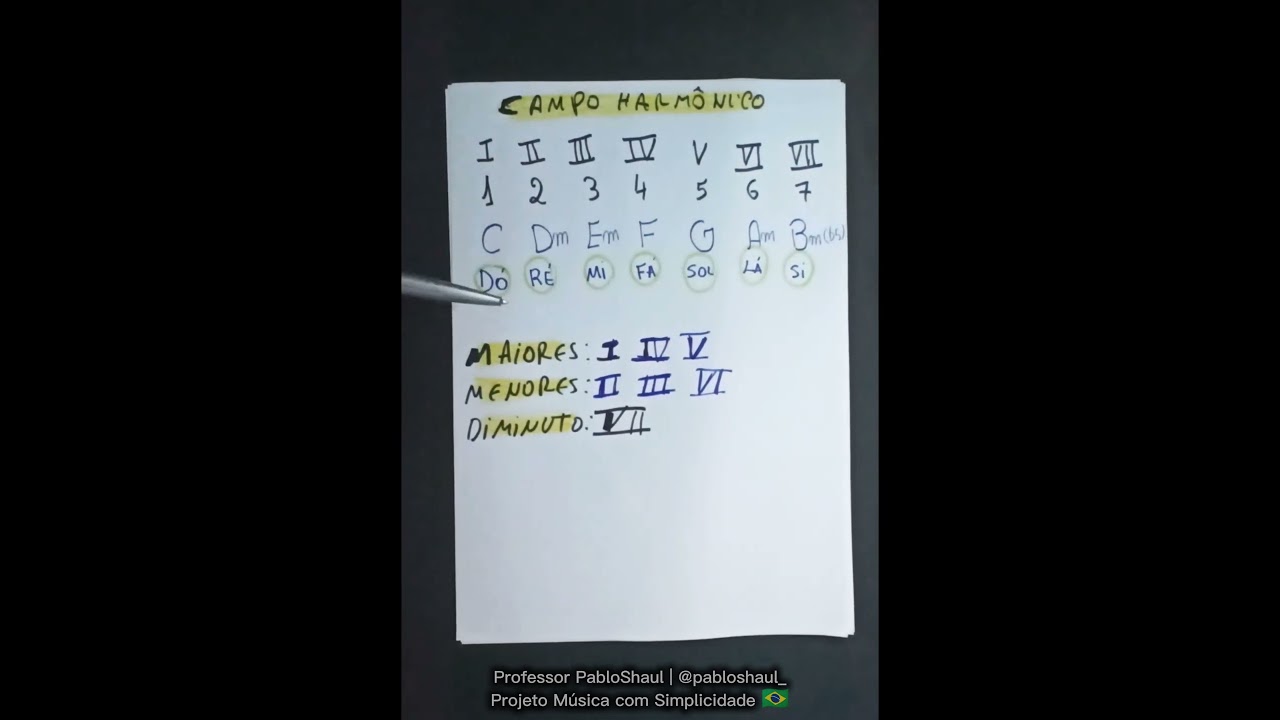 CAMPO HARMÔNICO
I II III IV V VI VII
1 2 3 4 5 6 7
C Dm Em F G Am Bm(b5)
DÓ RÉ MI FÁ SOL LÁ Si
MAiORES: I IV V
MENORES: II III VI
DiMiNUTO: VII
Professor PabloShaul | @pabloshaul_
Projeto Música com Simplicidade 🇧🇷